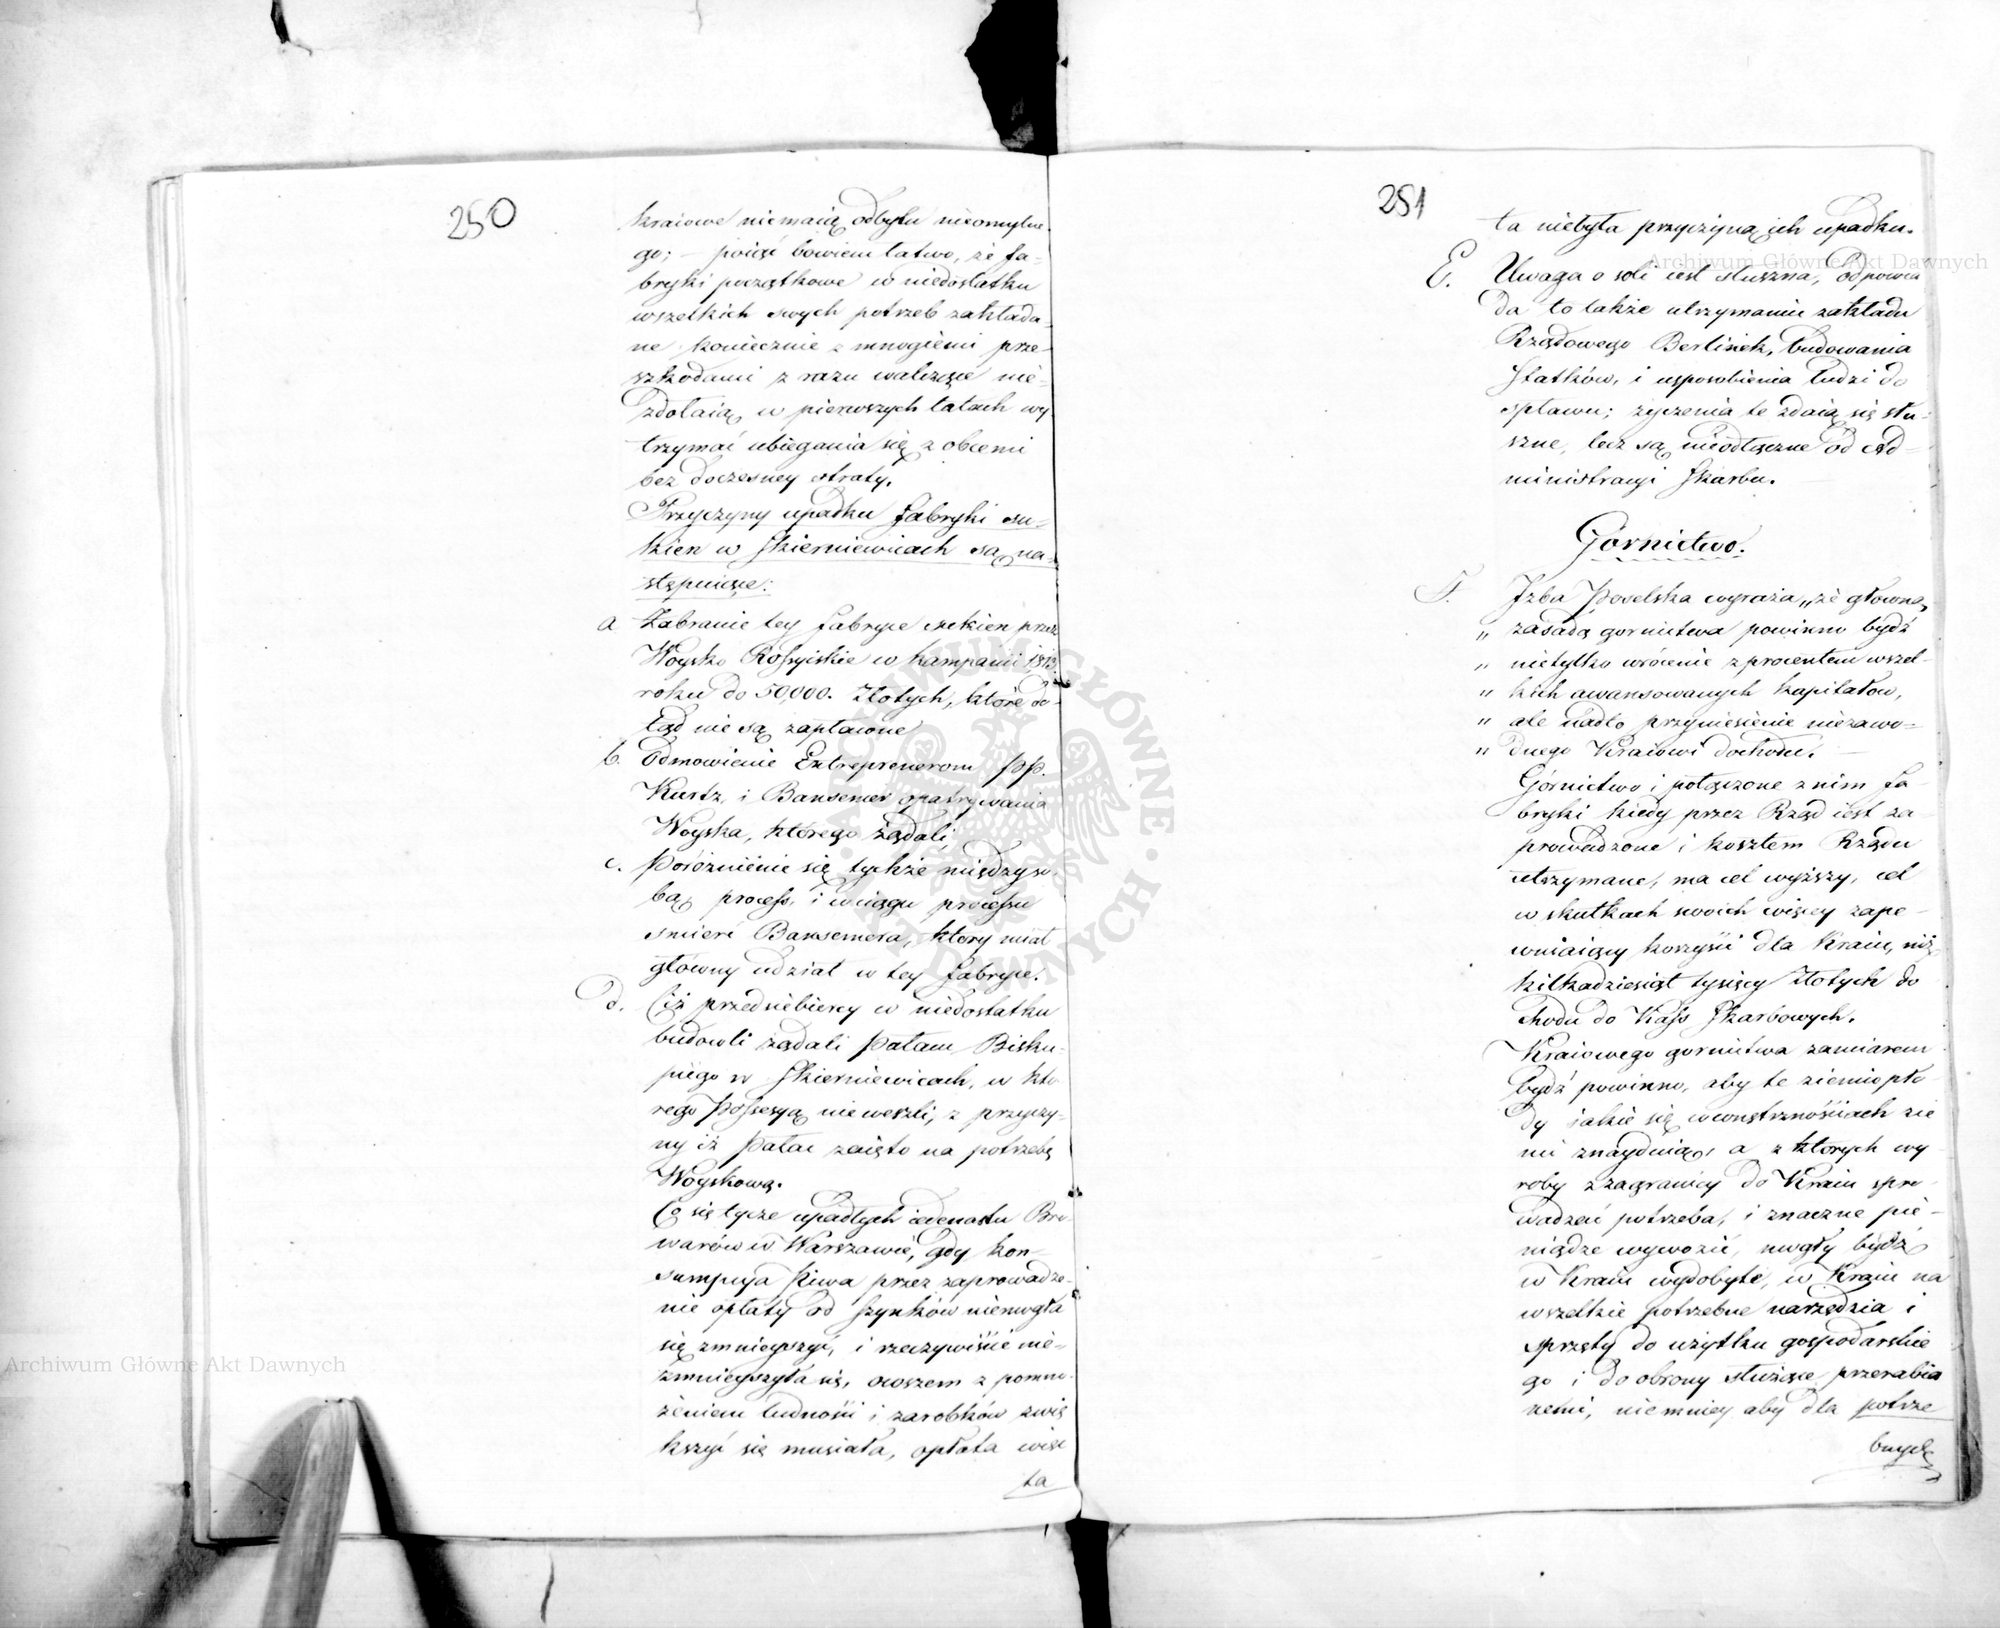 250
kraiowe niemaią odbytu nieomylne-
go; – poiąć bowiem łatwo, że fa-
bryki początkowe w niedostatku
wszelkich swych potrzeb zakłada-
ne koniecznie z mnogiemi prze-
szkodami z razu walczące nie-
zdołaią w pierwszych latach wy-
trzymać ubiegania się z obcemi
bez doczesney straty.
Przyczyny upadku fabryki su-
kien w Skierniewicach są na-
stępuiące:
a Zabranie tey fabryce sukien przez
Woysko Rossyiskie w kampanii 1813
roku do 50,000. Złotych, które do-
tąd nie są zapłacone
b. Odmowienie Entreprenerom PP.
Kurtz, i Bansemer opatrywania
Woyska, którego żądali,
c. Poróżnienie się tychże między so-
bą, process, i w ciągu processu
smierć Bansemera, który miał
główny udział w tey fabryce.
d. Ciż przedsiebiercy w niedostatku
budowli żądali Pałacu Bisku-
piego w Skierniewicach, w któ-
rego Possessyą nie weszli, z przyczy-
ny iż Pałac zaięto na potrzebę
Woyskową.
Co się tycze upadłych iedenastu Bro-
warów w Warszawie, gdy kon-
sumpcya Piwa przez zaprowadze-
nie opłaty od szynków niemogła
się zmnieyszyć, i rzeczywiście nie-
zmnieyszyła się, owszem z pomno-
żeniem ludności i zarobków zwię
kszyć się musiała, opłata więc
ta
251
ta niebyła przyczyną ich upadku.
E. Uwaga o soli iest słuszna, odpowia
da to także utrzymaniu zakładu
Rządowego Berlinek, budowania
Statków, i usposobienia ludzi do
spławu; życzenia te zdaią się słu-
szne, lecz są nieodłączne od Ad-
ministracyi Skarbu.
Górnictwo.
F. Izba Poselska wyraża „że główną
„ zasadą gornictwa powinno bydź
„ nietylko wrócenie z procentem wszel-
„ kich awansowanych kapitałow,
„ ale nadto przyniesienie niezawo-
„ dnego Kraiowi dochodu.
Górnictwo i połączone z nim fa-
bryki kiedy przez Rząd iest za-
prowadzone i kosztem Rządu
utrzymane, ma cel wyższy, cel
w skutkach swoich więcey zape-
wniaiący korzyści dla Kraiu, niż
kilkadziesiąt tysięcy Złotych do
chodu do Kass Skarbowych.
Kraiowego gornictwa zamiarem
bydź powinno, aby te ziemiopło-
dy iakie się w wnętrznościach zie
mi znayduią, a z których wy
roby z zagranicy do Kraiu spro-
wadzać potrzeba, i znaczne pie-
niądze wywozić, mogły bydź
w Kraiu wydobyte, w Kraiu na
wszelkie potrzebne narzędzia i
sprzęty do użytku gospodarskie
go i do obrony służące przerabia
nemi, niemniey aby dla potrze
bnych
Archiwum Główne Akt Dawnych
Archiwum Główne Akt Dawnych
ARCHIWUM GŁÓWNE AKT DAWNYCH